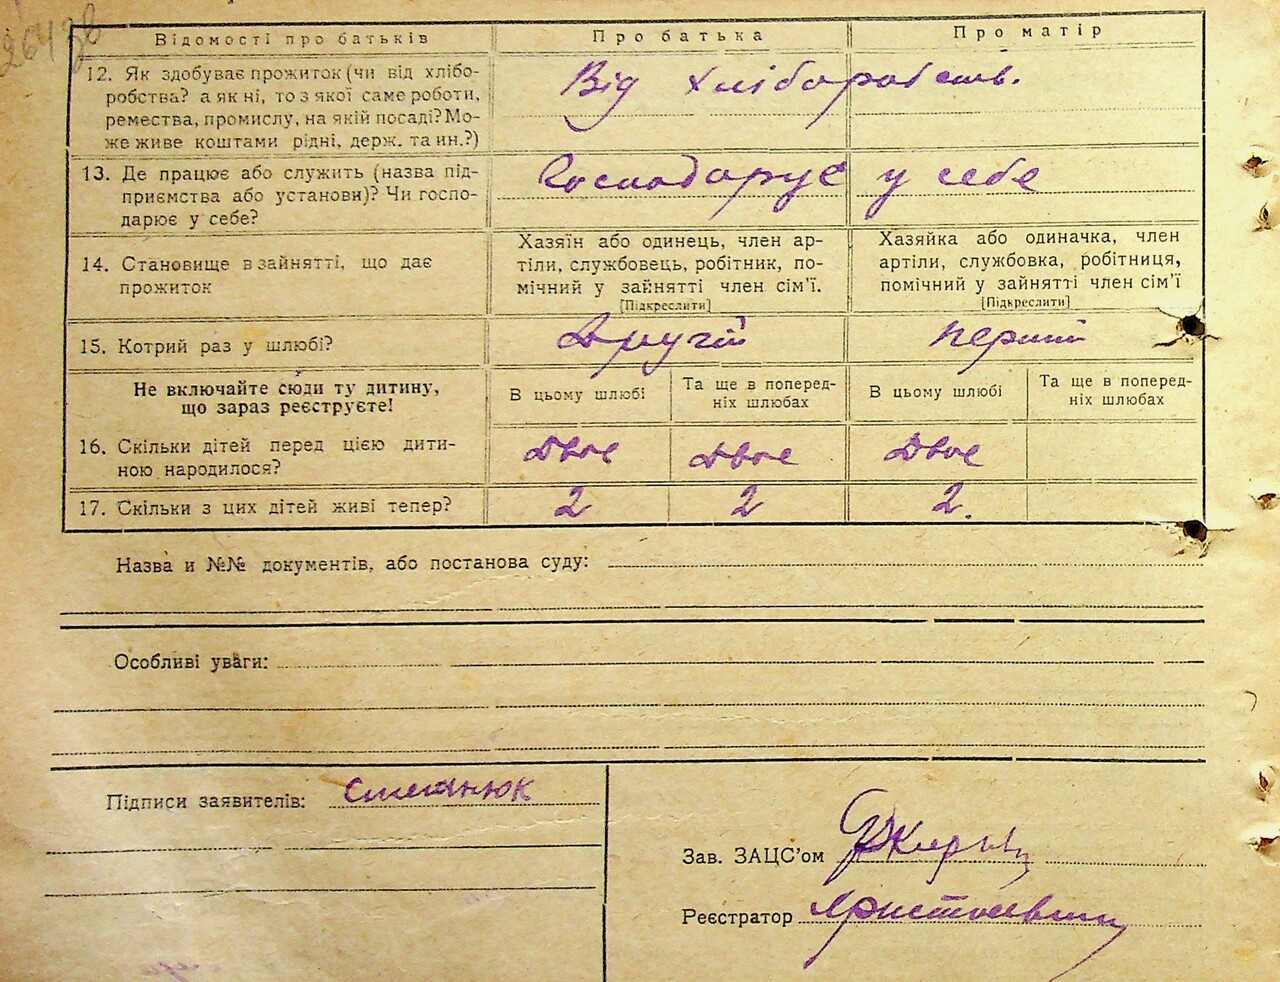 264зв
Відомості про батьків Про батька Про матір
12. Як здобуває прожиток (чи від хлібо-
робства? а як ні, то з якої саме роботи,
ремества, промислу, на якій посаді? Мо-
же живе коштами рідні, держ. та ин.?)
Від хліборобств.
13. Де працює або служить (назва під-
приємства або установи)? Чи госпо-
дарює у себе?
Господарує у себе
14. Становище в зайнятті, що дає
прожиток
Хазяїн або одинець, член ар-
тіли, службовець, робітник, по-
мічний у зайнятті член сім'ї.
[Підкреслити]
Хазяйка або одиначка, член
артіли, службовка, робітниця,
помічний у зайнятті член сім'ї
[Підкреслити]
15. Котрий раз у шлюбі? Другій перший
Не включайте сюди ту дитину,
що зараз реєструєте!
В цьому шлюбі
Та ще в поперед-
ніх шлюбах
В цьому шлюбі
Та ще в поперед-
ніх шлюбах
16. Скільки дітей перед цією дити-
ною народилося?
Двое Двое Двое
17. Скільки з цих дітей живі тепер? 2 2 2.
Назва и №№ документів, або постанова суду:
Особливі уваги:
Підписи заявителів: Степанюк
Зав. ЗАЦС'ом
Реєстратор